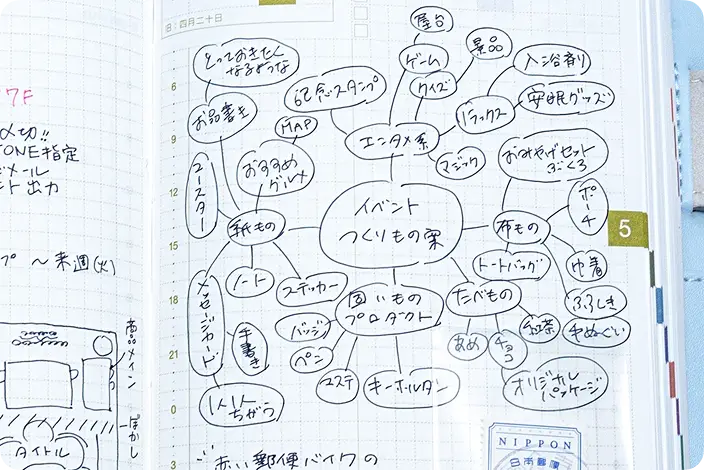 旧：四月二十日
6
9
12
15
18
21
0
3
5
7F
〆切!!
TONE指定
メール
ント出力
プ 〜来週(火)
商品メイン
ぼかし
タイトル
イベント
つくりもの案
エンタメ系
記念スタンプ
ゲーム
屋台
クイズ
景品
リラックス
入浴剤
安眠グッズ
マジック
布もの
おみやげセット
ぶくろ
ポーチ
巾着
ふろしき
手ぬぐい
トートバッグ
たべもの
あめ
チョコ
紅茶
オリジナル
パッケージ
固いもの
プロダクト
バッジ
ペン
コステ
キーホルダー
紙もの
お品書き
とっておきたく
なるような
おすすめ
グルメ
MAP
コースター
ノート
ステッカー
メッセージカード
手書き
1人1人
ちがう
赤い郵便バイクの
NIPPON
日本郵便